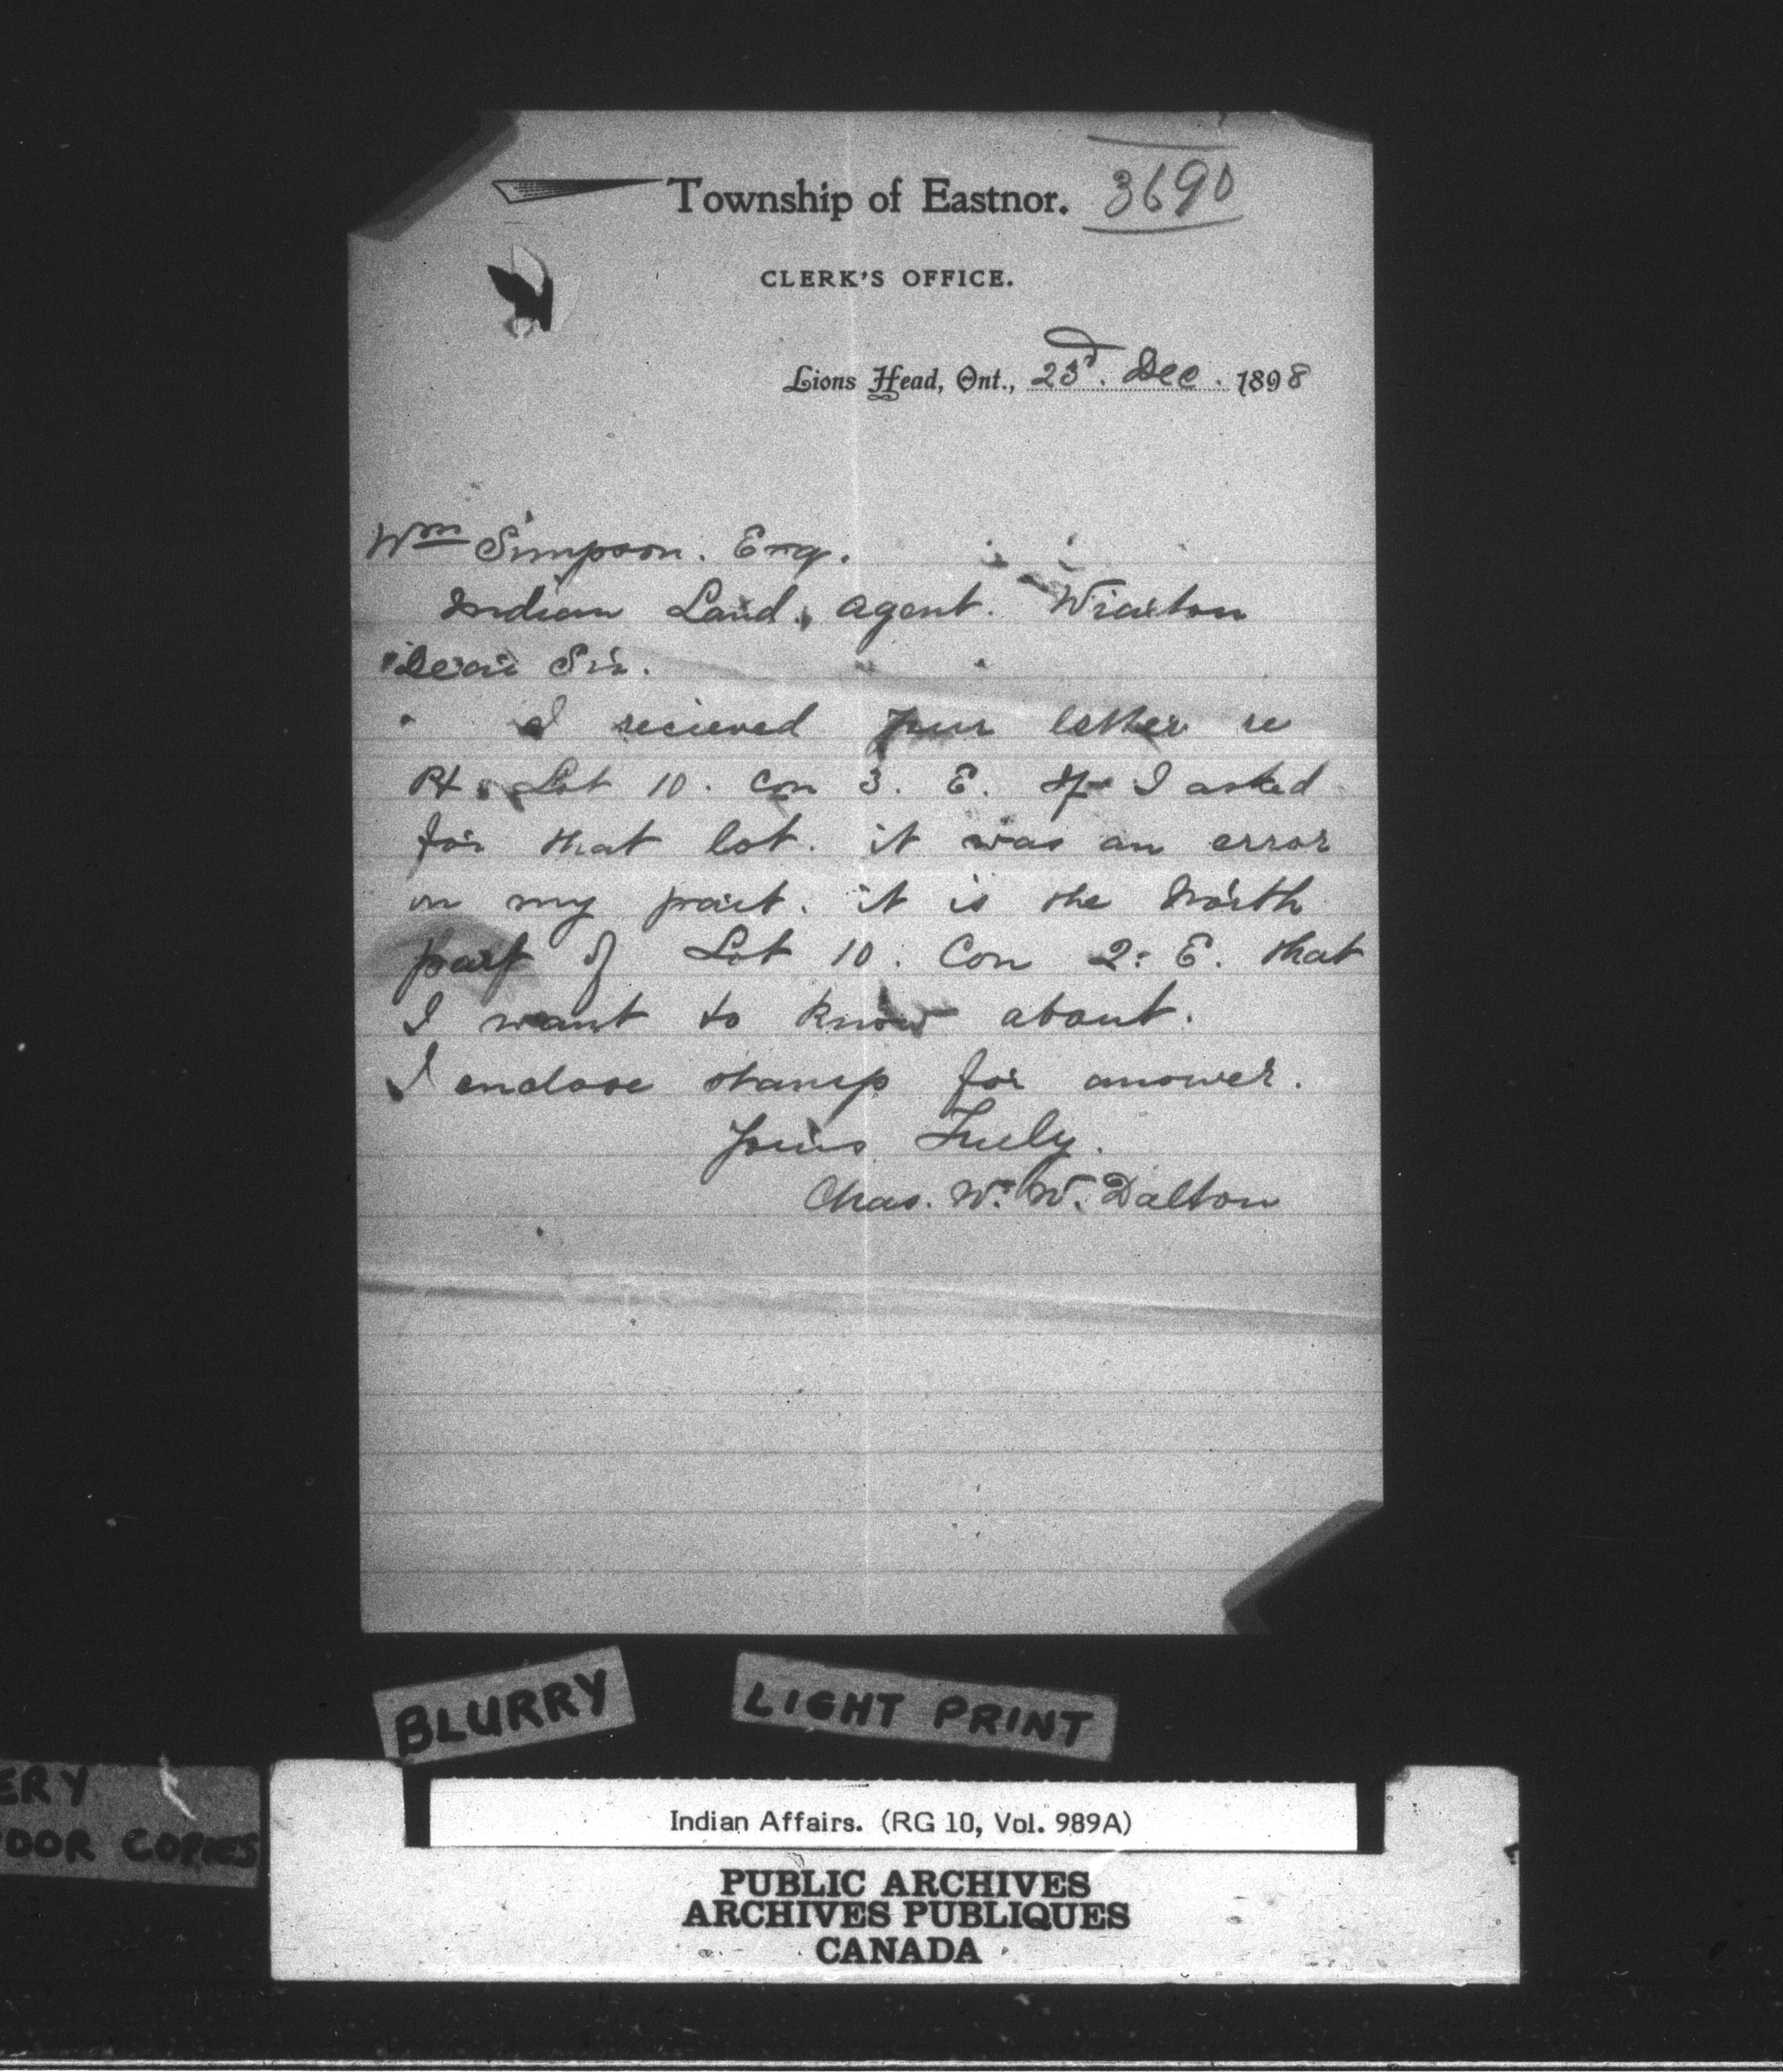 Township of Eastnor. 3690
CLERK'S OFFICE.
Lions Head, Ont., 23d. Dec. 1898
Wm Simpson. Esq.
Indian Land, Agent. Wiarton
Dear Sir.
I recieved your letter re
Pt. Lot 10. Con 3. E. If I asked
for that lot. it was an error
on my part. it is the North
part of Lot 10. Con 2: E. that
I want to know about.
I enclose stamp for answer.
Yours Truly.
Chas. W. W. Dalton
BLURRY LIGHT PRINT
ERY
OOR COPIES
Indian Affairs. (RG 10, Vol. 989A)
PUBLIC ARCHIVES
ARCHIVES PUBLIQUES
CANADA